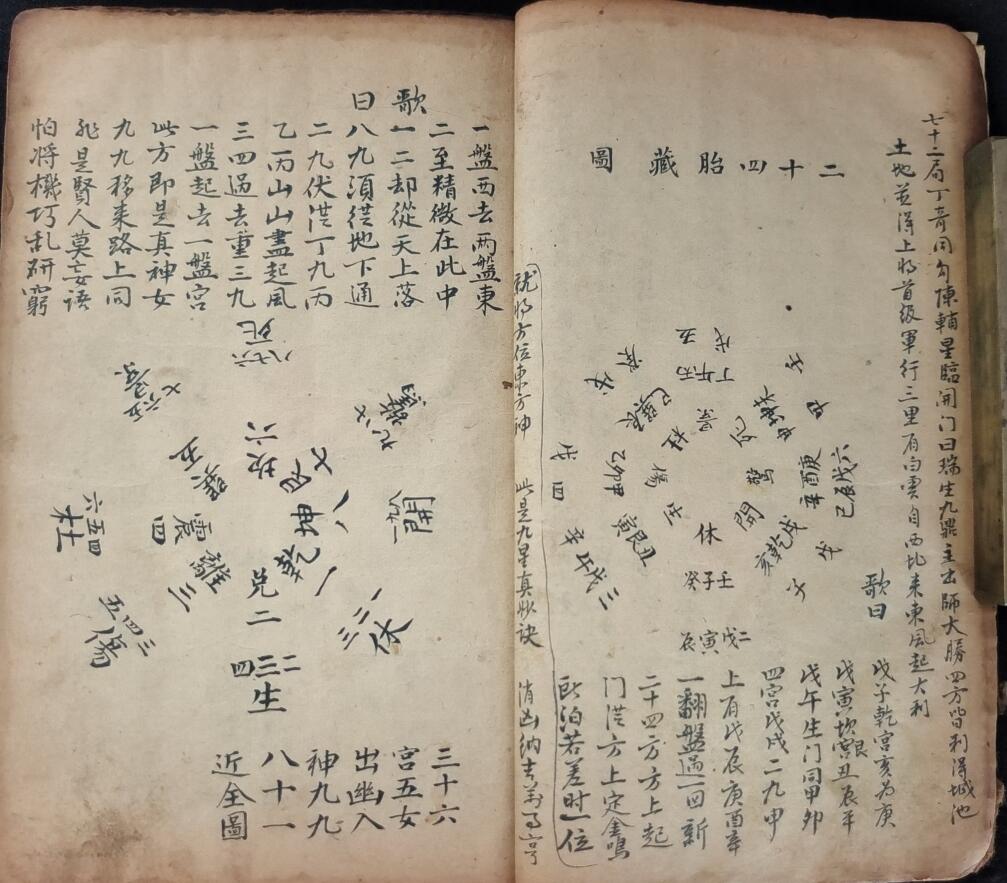 七十二局丁奇同勾陳輔星臨開门曰瑞生九鼎主出師大勝四方皆利得城池
土地並得上將首級軍行三里有白雲自西北来東風起大利
二十四胎藏圖
戊
五
丁午丙
景
死
驚
開
休
杜
傷
生
壬子癸
丑艮寅
乙卯甲
庚酉辛
戌乾亥
二戊寅辰
六戊辰己
歌曰
戊子乾宮亥為庚
戊寅坎宮艮丑辰平
戊午生门同甲卯
四宮戊戌二九申
上有戊辰庚酉辛
一翻盤過一回新
二十四方方上起
门從方上定金鳴
所泊若差时一位
就將方位東方神 此是九星真妙诀 消凶纳吉萬事亨
歌曰
一盤西去两盤東
二至精微在此中
一二却從天上落
八九須從地下通
二九伏從丁九丙
乙丙山山盡起風
三四過去重三九
一盤起去一盤宮
此方即是真神女
九九移来路上同
非是賢人莫妄語
怕将機巧乱研窮
死
六七八
景
五六七
杜
四五六
傷
三四五
生
二三四
休
一二三
開
一九八
驚
九八七
坎六
艮七
坤八
乾一
兑二
離三
震四
巽五
三十六
宮五女
出幽入
神九九
八十一
近全圖